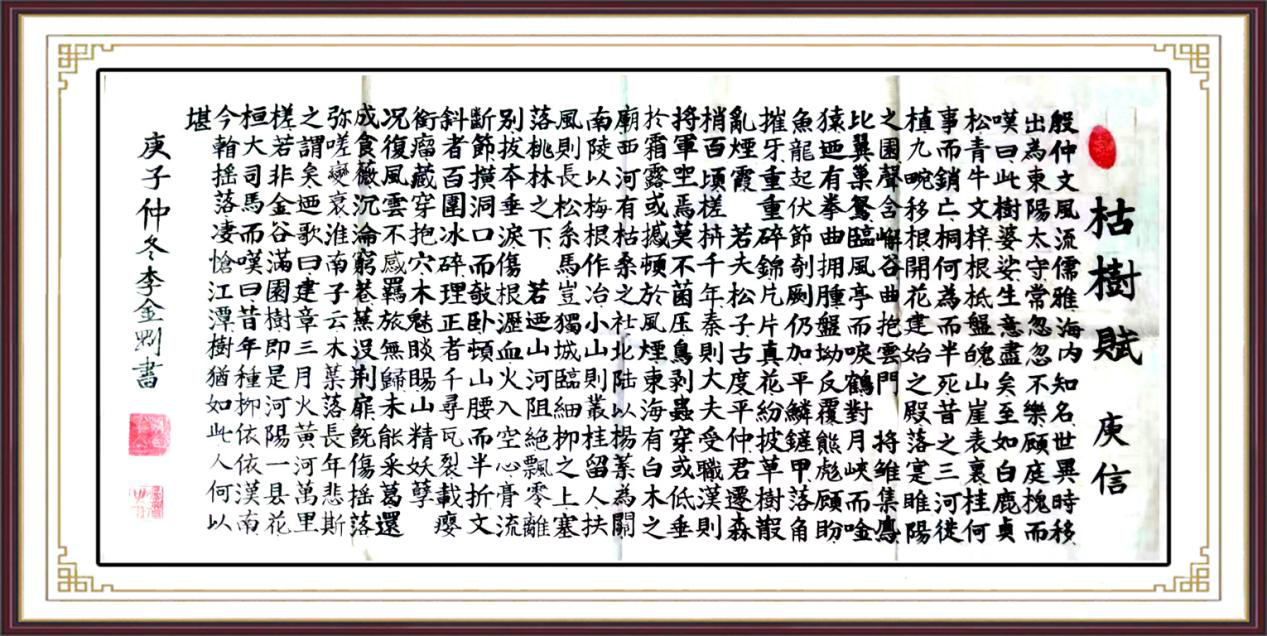 枯樹賦 庚信
殷仲文風流儒雅海内知名世異時移
出為東陽太守常忽忽不樂顧庭槐而
嘆曰此樹婆娑生意盡矣至如白鹿貞
松青牛文梓根柢盤魄山崖表裏桂何
事而銷亡桐何為而半死昔之三河徙
植九畹移根開花建始之殿落寔睢陽
之園聲含嶰谷曲抱雲門 將雏集鳳
比翼巢鴛臨風亭而唳鶴對月峽而唫
猿迺有拳曲拥腫盤坳反覆熊彪顧盼
魚龍起伏節剞劂仍加平鱗鏟甲落角
摧牙重重碎錦片片真花紛披草樹散
亂煙霞 若夫松子古度平仲君遷森
梢百頃槎枿千年秦則大夫受職漢則
將軍坐焉莫不菌压鳥剥蟲穿或低垂
於霜露或撼頓於風煙東海有白木之
廟西河有枯桑之社北陆以楊葉為關
南陵以梅根作冶小山則叢桂留人扶
風則長松系馬豈獨城臨細柳之上塞
落桃林之下 若迺山河阻絕飄零離
别拔夲垂淚傷根瀝血火入空心膏流
斷節橫洞口而敧卧頓山腰而半折文
斜者百圍冰碎理正者千尋瓦裂載癭
銜瘤藏穿抱穴木魅睒睗山精妖孽
况復風雲不感羈旅無歸未能采葛還
成食薇沉淪窮巷蕪没荆扉既傷摇落
弥嗟變衰淮南子云木葉落長年悲斯
之謂矣迺歌曰建章三月火黃河萬里
槎若非金谷滿園樹即是河陽一县花
桓大司馬而嘆曰昔年種柳依依漢南
今翰摇落凄愴江潭樹猶如此人何以
堪
庚子仲冬李金剛書